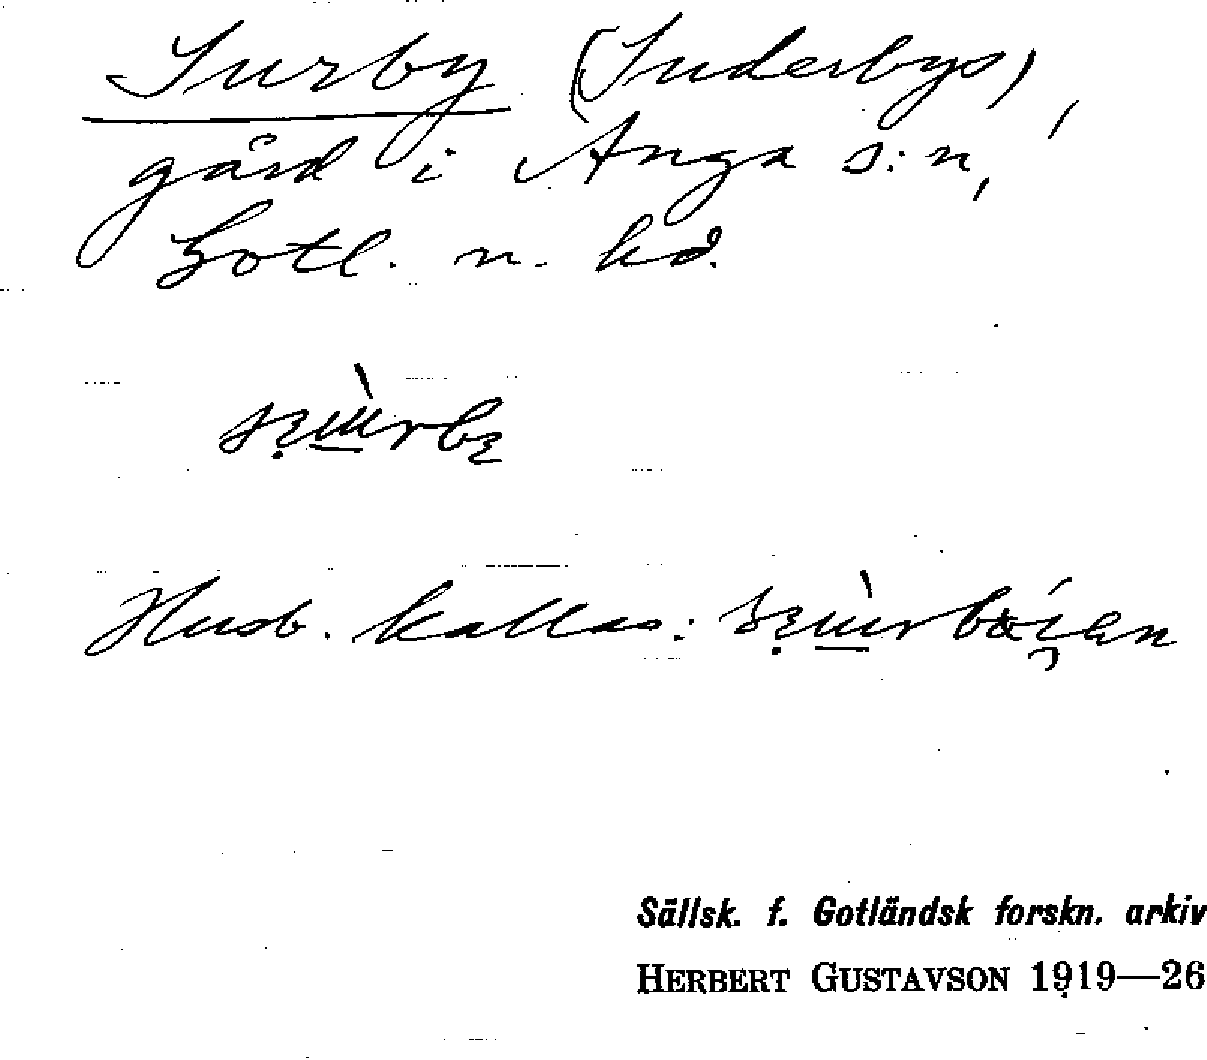 Surby (Suderbys),
gård i Anga s:n,
Gotl. n. hd.
Husb. kallas:
Sällsk. f. Gotländsk forskn. arkiv
HERBERT GUSTAVSON 1919—26